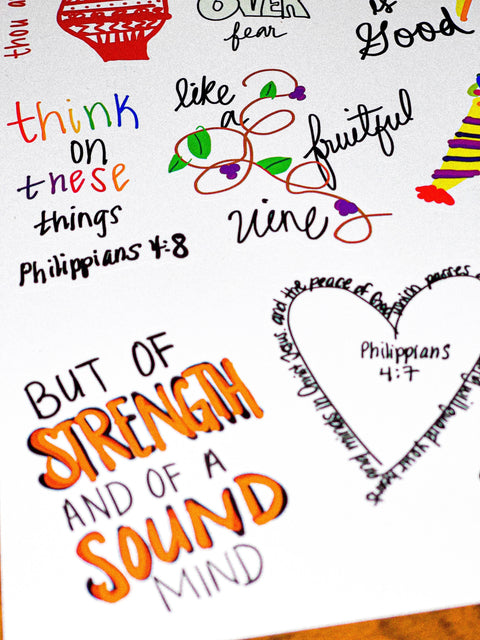 thou a
OVER
fear
is
Good
think
on
these
things
Philippians 4:8
like
a
fruitful
vine
BUT OF
STRENGTH
AND OF A
SOUND
MIND
and the peace of God which passes
will guard your hearts
and minds in
Jesus.
Philippians
4:7